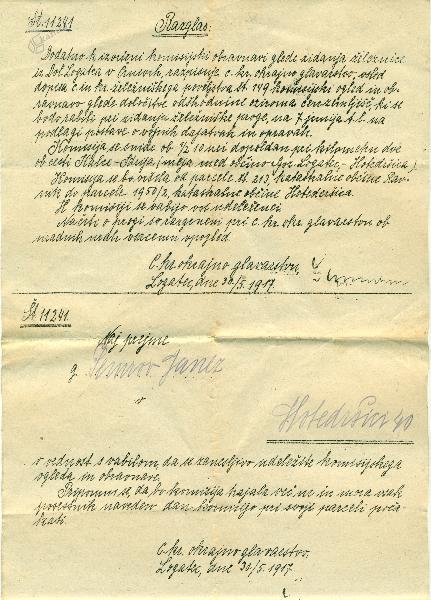 Št 11241.
Razglas.
Dodatno k izvršeni komisijski obravnavi glede zidanja železnice
iz Dol. Logatca v razpisuje c. kr. okrajno glavarstvo, vsled
dopisa c. in kr. železniškega poveljstva št. 149 komisijski ogled in ob-
ravnavo glede določitve odškodnine oziroma zemljišč, ki se
bodo rabili pri zidanju železniške proge, na 7. junija t. l. na
podlagi postave o vojnih dajatvah in opravah.
Komisija se snide ob ½ 10 uri dopoldan pri kilometru dve
ob cesti Kalce - Idrija /meja med občino Gor. Logatec - Hotedršica/
Komisija se bo vršila od parcele št. 213 katastralne občine Rav-
nik do parcele 1950/2 katastralne občine Hotedršica.
K komisiji se vabijo vsi udeleženci.
Načrti o progi so razgrnjeni pri c. kr. okr. glavarstvu ob
uradnih urah vsacemu vpogled.
C. kr. okrajno glavarstvo
Logatec, dne 30/5. 1917.
Št 11241.
Naj prejme
g. Janez
v
Hotedršici 40
v vednost s vabilom, da se zanesljivo udeležite komisijskega
ogleda in obravnave.
Pripomni se, da bo komisija trajala več ur in mora vsak
posestnik navedeni dan komisijo pri svoji parceli poča-
kati.
C. kr. okrajno glavarstvo.
Logatec, dne 30/5. 1917